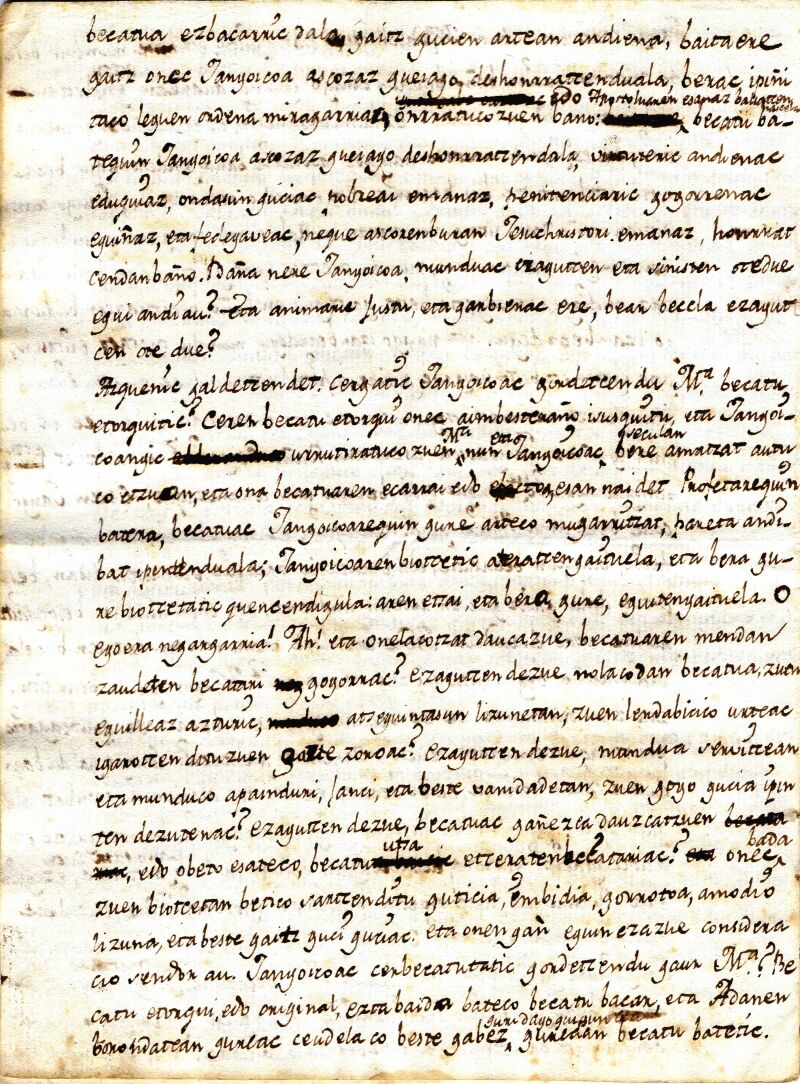 becatua ezbacarric dala, gaitz gucien artean andiena, baita ere
gaitz onec Jangoicoa ascozaz gueiago, deshonrratcenduala, berac ipiñi
edo Apostoluaren esanaz baliatcen
taco leguen ordena miragarriaz, onrratuco zuen baño: becatu ba-
tequin Jangoicoa ascozaz gueiago deshonrratzendala, virtuteric andienac
eduquiaz, ondasun guciac pobreai emanaz, penitenciaric gogorrenac
eguiñaz, eta fedegaveac, neque ascorenburan Jesuchristori emanaz, honrrat
cendan baño. Baña nere Jangoicoa, munduac ezagutcen eta sinisten otedue
egui andi au? Eta animarie justu, eta garbienac ere, bear becela ezagut
cen ote due?
Azquenic galdetcen det. Cergatic Jangoicoac gordetcen du Mª. becatu
etorquitic? Ceren becatu etorqui onec, ainbesteraño itsusquitu, eta Jangoi-
coangic urrutiratuco zuen Mª, nun eta Jangoicoac, bere amatzat autu
seculan
co etzuen, eta ona becatuaren ecarrai edo esan nai det. Profetarequin
batera, becatuac Jangoicoarequin gure arteco mugarritzat, pareta andi
bat ipintenduala; Jangoicoaren biotcetic ateratcen gaituela, eta bera gu-
re biotcetatic quencendigula: aren etsai, eta bera gure, eguitengaituela. O
egoera negargarria! Ah! eta onelacotzat daucazue, becatuaren mendan
zaudeten becatari gogorrac? Ezagutcen dezue nolaco dan becatua, zuen
eguilleaz azturic, atseguintasun lizunetan, zuen lendabicico urteac
igarotcen dituzuen gazte zoroac? Ezagutcen dezue, mundua servitcean
eta munduco apainduri, janci, eta beste vanidadetan, zuen gozo gucia ipin
ten dezutenac? Ezagutcen dezue, becatuac gañezca dauzcatzuen
edo obeto esateco, becatu utsa etceraten becatariac? onec bada
zuen biotcetan betico sartcenditu guticia, embidia, gorrotoa, amodio
lizuna, eta beste gaitz guci guciac. Eta onen gañ eguin ezazue considera
cio sendor au. Jangoicoac cerbecatutatic gordetcendu gaur Mª.? Be
catu etorqui, edo original, ezta baidan bateco becatu bacar, eta Adanen
borondatean gureac ceudelaco beste gabez, gurean becatu batetic.